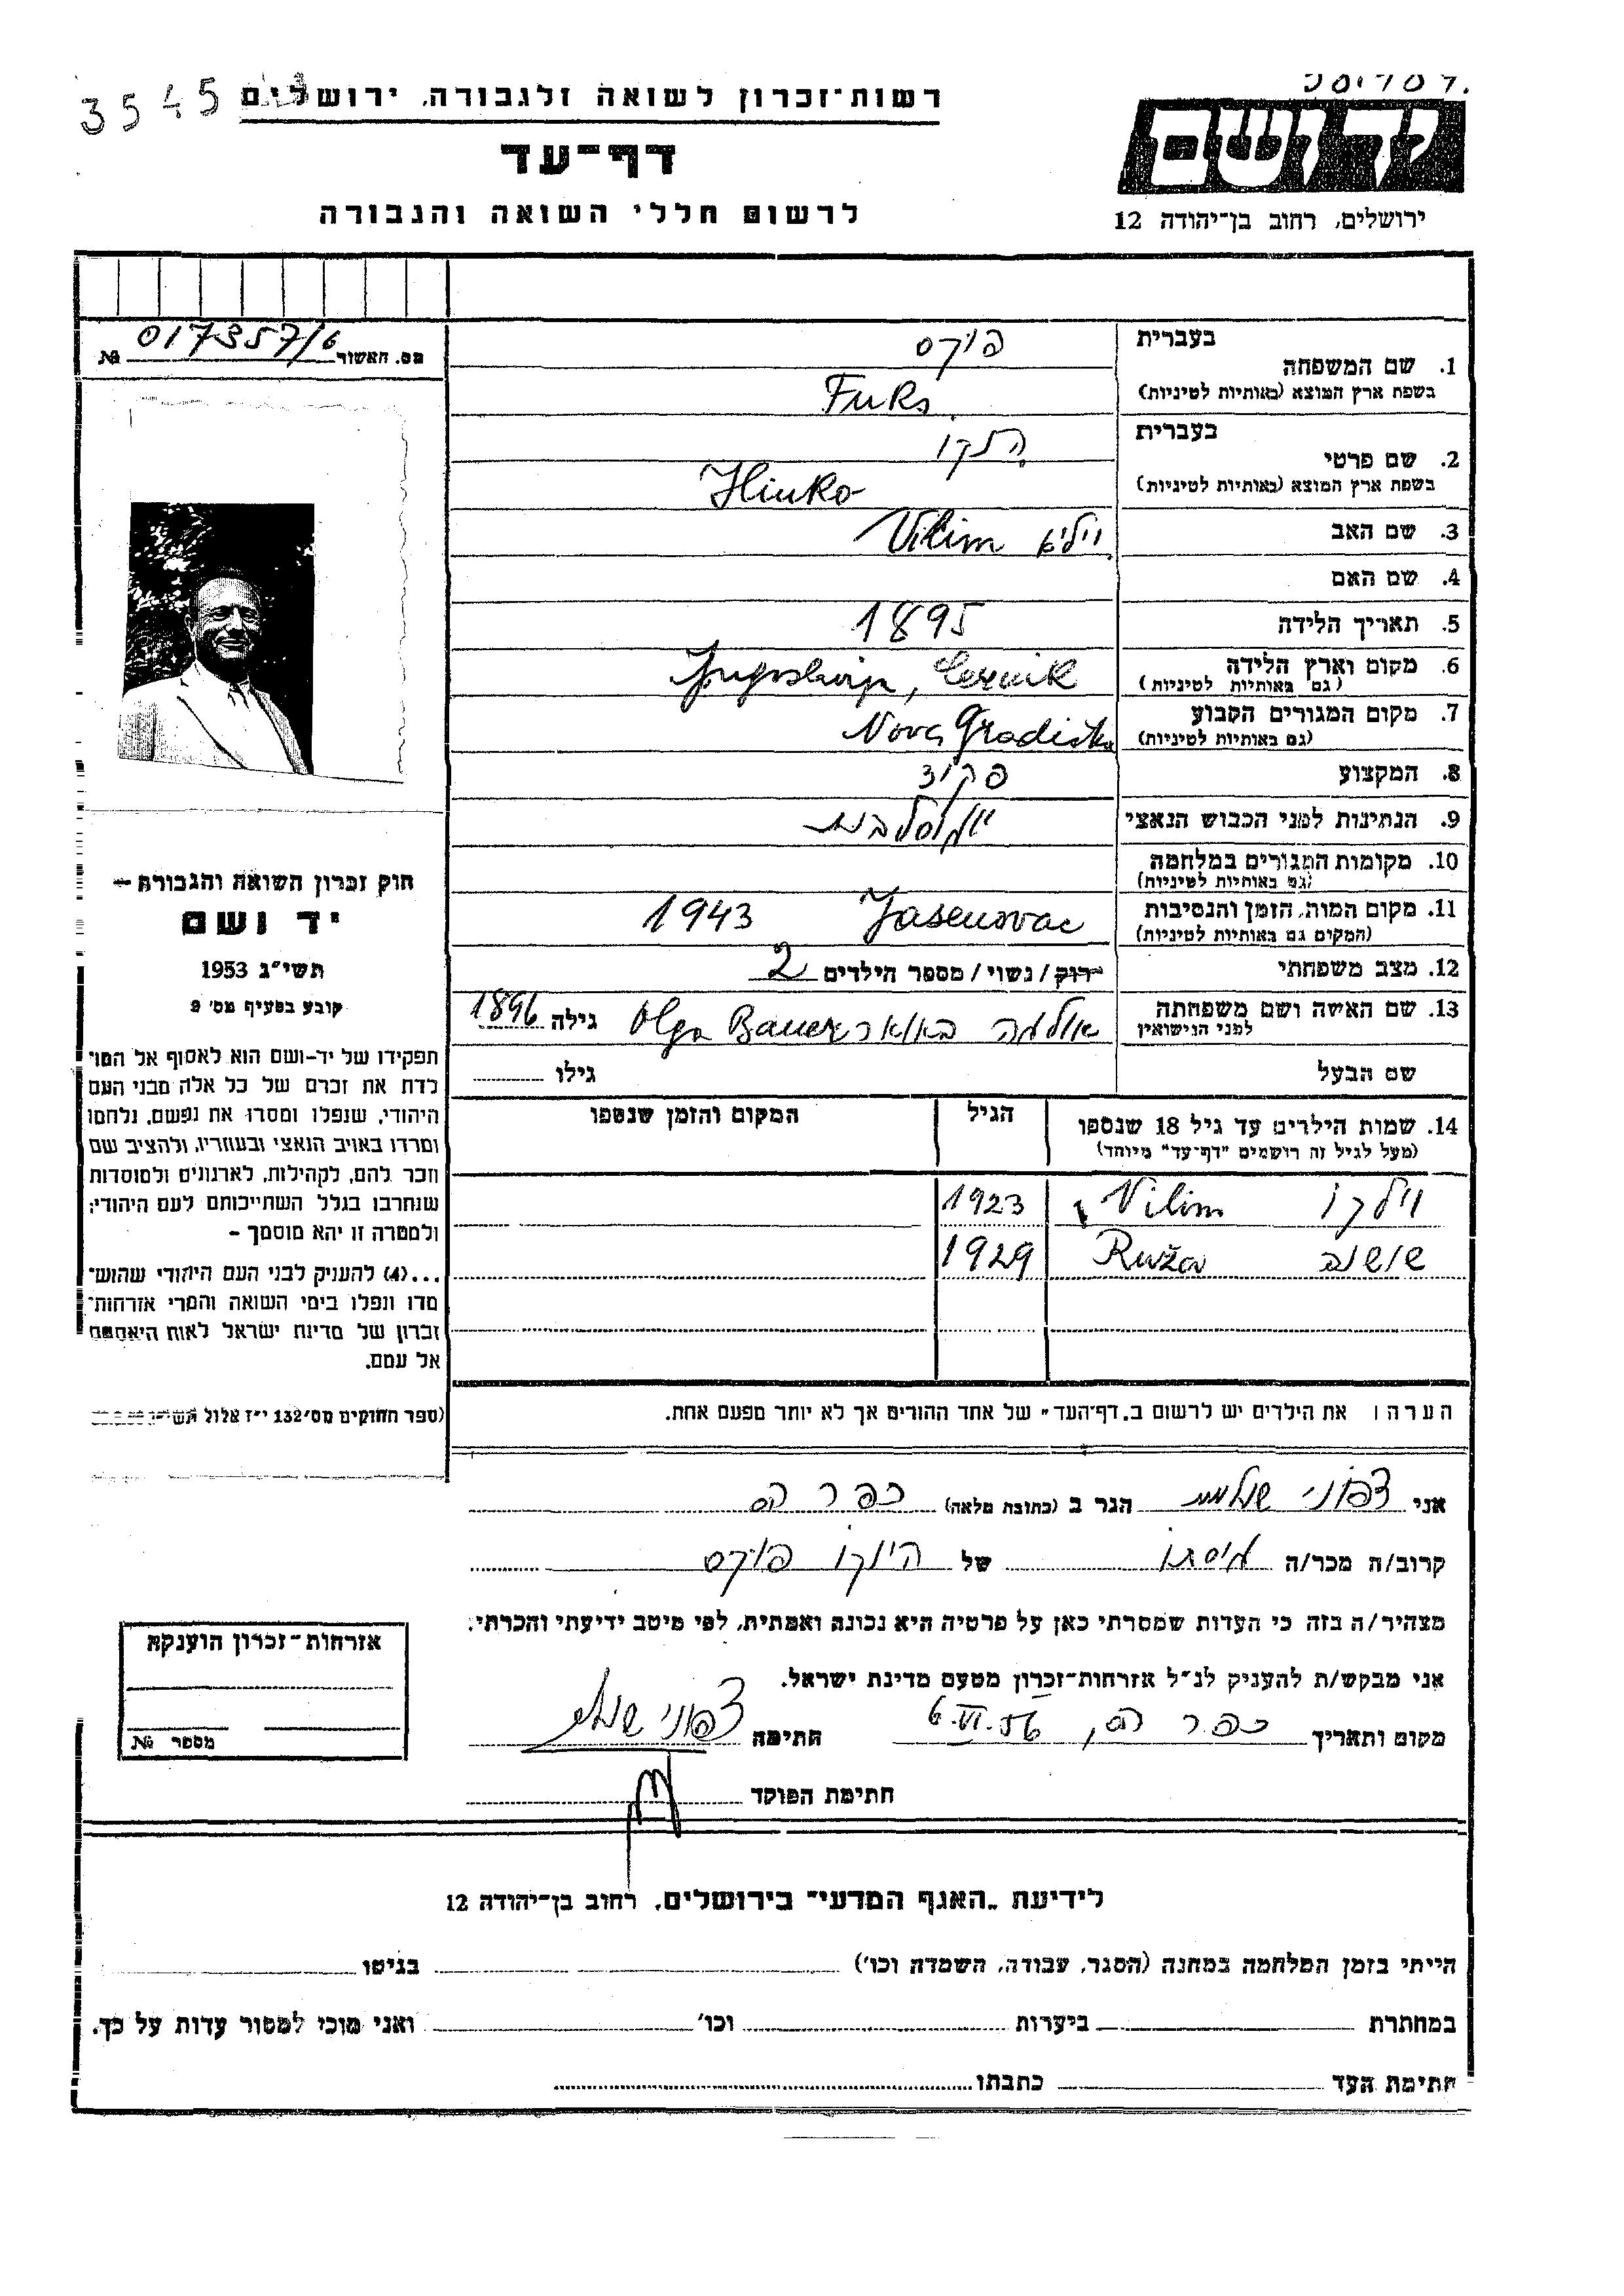 רשות-זכרון לשואה ולגבורה, ירושלים
3545
דף-עד
לרשום חללי השואה והגבורה
יד ושם
ירושלים, רחוב בן-יהודה 12
מס. האשור 017357/6 №
בעברית פוקס
1. שם המשפחה
בשפת ארץ המוצא (באותיות לטיניות) Fuks
בעברית
2. שם פרטי
בשפת ארץ המוצא (באותיות לטיניות) Hinko
3. שם האב Vilim
4. שם האם
5. תאריך הלידה 1895
6. מקום וארץ הלידה Jugoslavija, Cernik
(גם באותיות לטיניות)
7. מקום המגורים הקבוע Nova Gradiška
(גם באותיות לטיניות)
8. המקצוע פקיד
9. הנתינות לפני הכבוש הנאצי יוגוסלבית
10. מקומות המגורים במלחמה
(גם באותיות לטיניות)
11. מקום המות, הזמן והנסיבות Jasenovac 1943
(המקום גם באותיות לטיניות)
12. מצב משפחתי רוק / נשוי / מספר הילדים 2
13. שם האשה ושם משפחתה אולגה באואר Olga Bauer גילה 1896
לפני הנישואין
שם הבעל גילו
14. שמות הילדים עד גיל 18 שנספו הגיל המקום והזמן שנספו
(מעל לגיל זה רושמים "דף-עד" מיוחד)
וילקו Vilim 1923
שושנה Ruža 1929
חוק זכרון השואה והגבורה —
יד ושם
תשי"ג 1953
קובע בסעיף מס' 2
תפקידו של יד-ושם הוא לאסוף אל המו־
לדת את זכרם של כל אלה מבני העם
היהודי, שנפלו ומסרו את נפשם, נלחמו
ומרדו באויב הנאצי ובעוזריו, ולהציב שם
וזכר להם, לקהילות, לארגונים ולמוסדות
שנחרבו בגלל השתייכותם לעם היהודי;
ולמטרה זו יהא מוסמך –
...(4) להעניק לבני העם היהודי שהוש־
מדו ונפלו בימי השואה והמרי אזרחות־
זכרון של מדינת ישראל לאות היאספם
אל עמם.
(ספר החוקים מס' 132 י"ז אלול
הערה: את הילדים יש לרשום ב„דף-העד" של אחד ההורים אך לא יותר מפעם אחת.
אני צפוני שולמית הגר ב (כתובת מלאה) כפר הס
קרוב/ה מכר/ה גיסתו של הינקו פוקס
מצהיר/ה בזה כי העדות שמסרתי כאן על פרטיה היא נכונה ואמתית, לפי מיטב ידיעתי והכרתי.
אני מבקש/ת להעניק לנ"ל אזרחות-זכרון מטעם מדינת ישראל.
מקום ותאריך כפר הס, 6.VI.56 חתימה צפוני שולמית
חתימת הפוקד
אזרחות-זכרון הוענקה
מספר №
לידיעת „האגף המדעי" בירושלים, רחוב בן-יהודה 12
הייתי בזמן המלחמה במחנה (הסגר, עבודה, השמדה וכו') בגיטו
במחתרת ביערות וכו' ואני מוכן למסור עדות על כך.
חתימת העד כתבתו